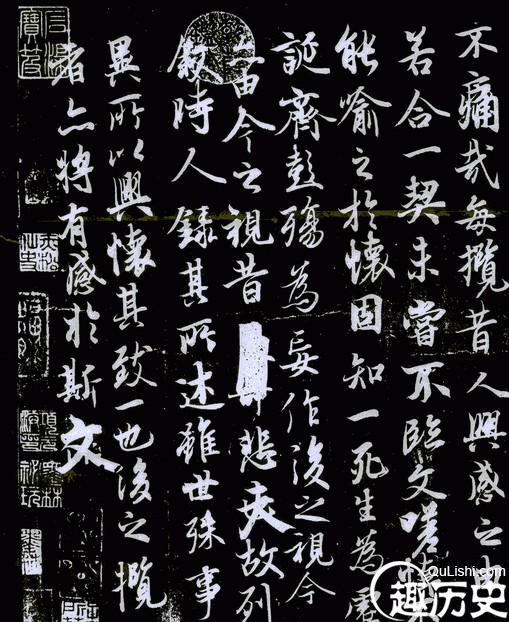 不痛哉每攬昔人興感之由
若合一契未嘗不臨文嗟
能喻之於懷固知一死生為虛
誕齊彭殤為妄作後之視今
亦由今之視昔悲夫故列
敘時人錄其所述雖世殊事
異所以興懷其致一也後之攬
者亦將有感於斯文
QuLishi.com
趣历史